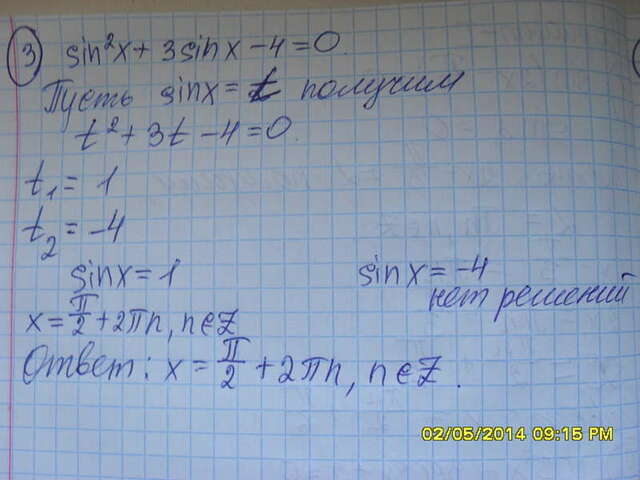 3 sin²x + 3sinx - 4 = 0.
Пусть sinx = t получим
t² + 3t - 4 = 0.
t₁ = 1
t₂ = -4
sinx = 1 sinx = -4
нет решений
x = π/2 + 2πn, n∈Z
Ответ: x = π/2 + 2πn, n∈Z.
02/05/2014 09:15 PM